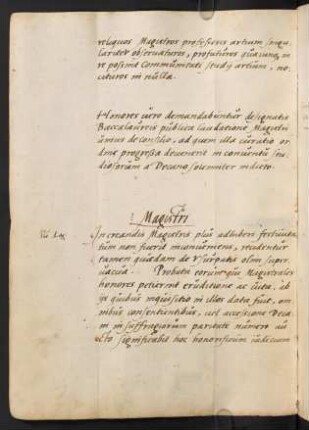 reliquos Magistros professores artium singu
lariter observaturos, profuturos quacunq; in
re possint Communitati studij artium, no,
cituros in nulla.
Honores vero demandabuntur designatis
Baccalaureis publica laudatione Magistri
unius de consilio, ad quem illa curatio or
dine progressa devenerit in conventu stu,
diosorum a Decano solemniter indicto.
Magistri
In creandis Magistris plus adhiberi festivita,
tum non fuerit inconveniens, videntur
tamen quædam de usurpatis olim super
vacua. Probata eorum qui Magistrales
honores petierint eruditione ac vita, ab
ijs quibus inquisitio in illos data fuit, om
nibus consentientibus, vel accessione Deca
ni in suffragiorum paritate numero au
cto significabit hoc honorificum iudicium